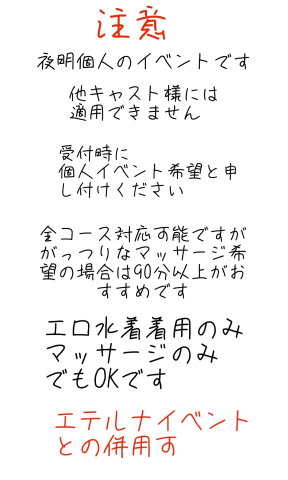 注意
夜明個人のイベントです
他キャスト様には
適用できません
受付時に
個人イベント希望と申
し付けください
全コース対応可能ですが
がっつりなマッサージ希
望の場合は90分以上がお
すすめです
エロ水着着用のみ
マッサージのみ
でもOKです
エテルナイベント
との併用す